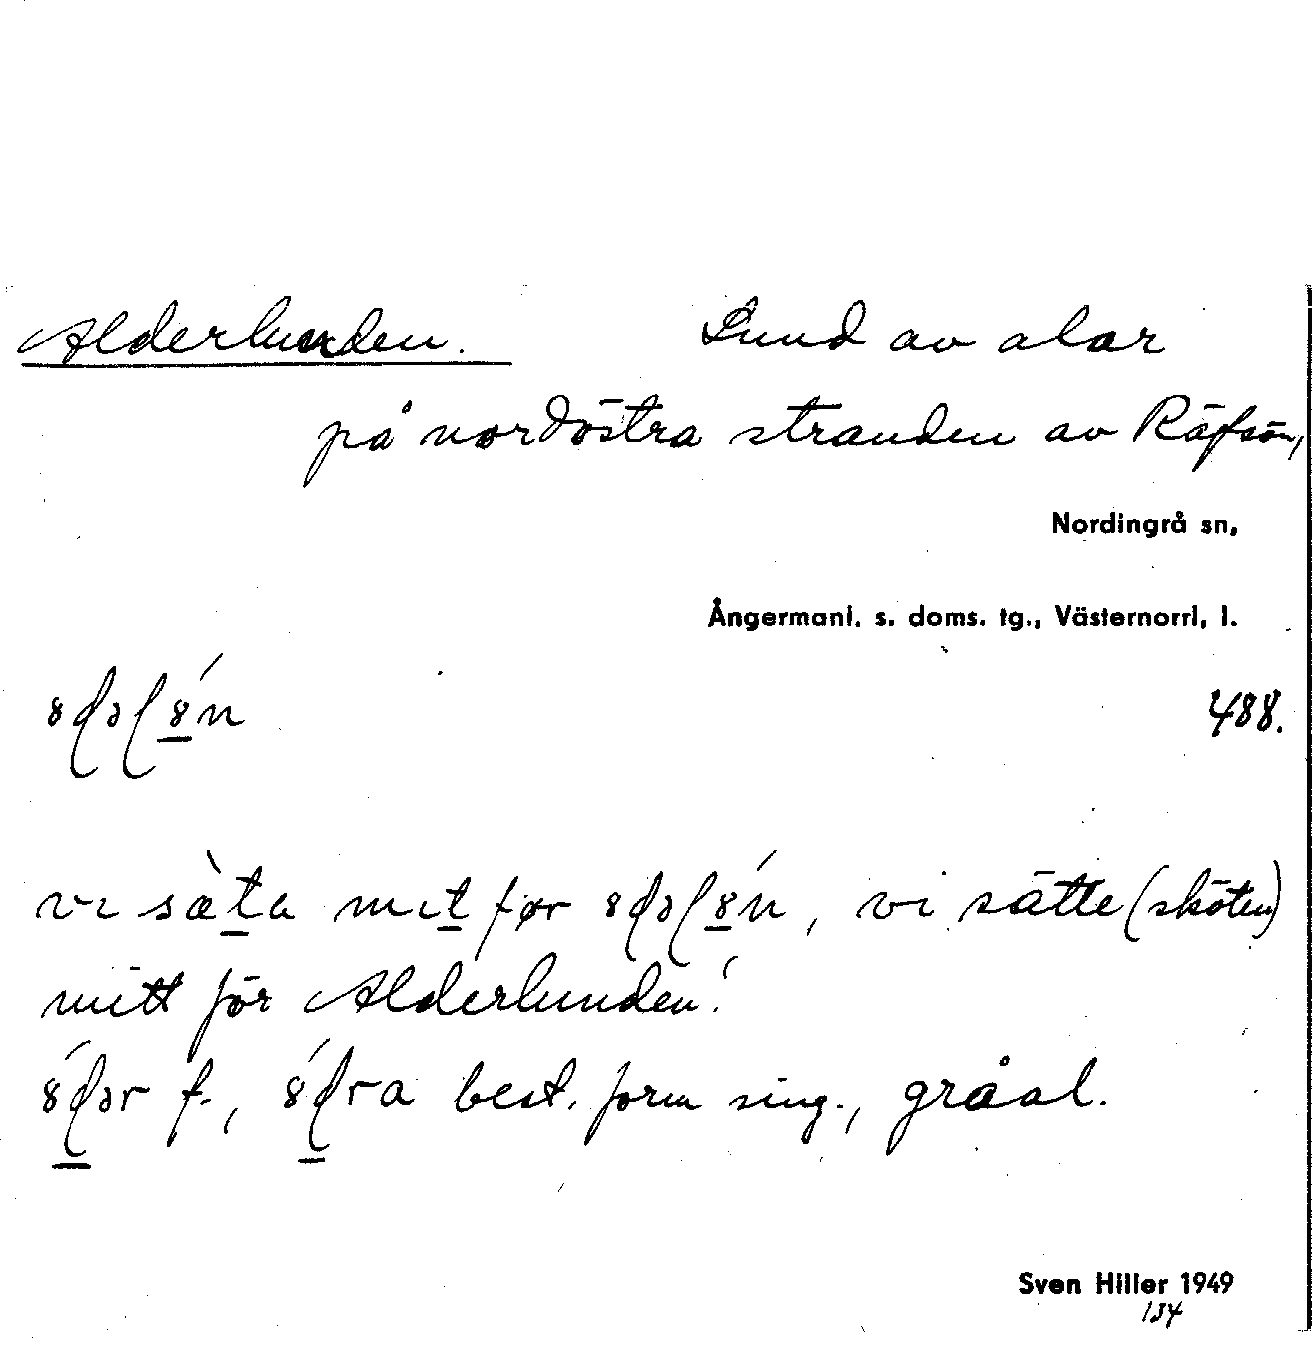 Alderlunden. Lund av alar
på nordöstra stranden av Räfsön,
Nordingrå sn,
Ångermanl. s. doms. tg., Västernorrl. l.
488.
vi sæ̀ta mıt før , vi sätte (sköten)
mitt för Alderlunden!
f., best. form sing., gråal.
Sven Hiller 1949
134